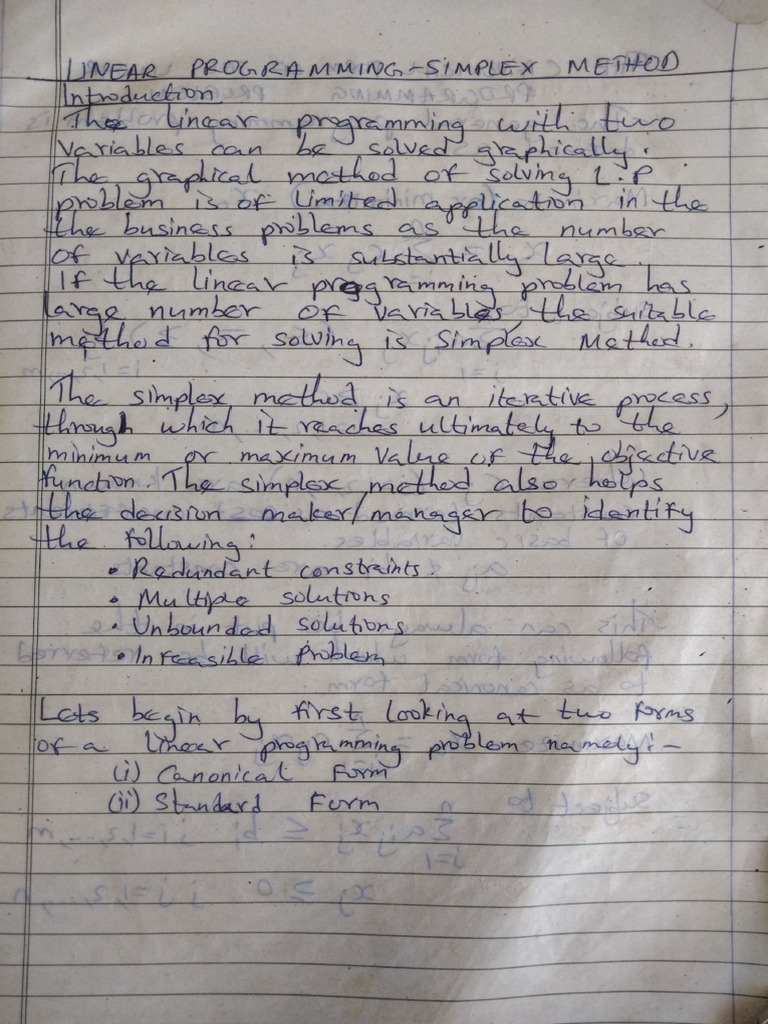 LINEAR PROGRAMMING - SIMPLEX METHOD
Introduction
The linear programming with two
variables can be solved graphically.
The graphical method of solving L.P
problem is of limited application in the
the business problems as the number
of variables is substantially large.
If the linear programming problem has
large number of variables, the suitable
method for solving is Simplex Method.
The simplex method is an iterative process,
through which it reaches ultimately to the
minimum or maximum value of the objective
function. The simplex method also helps
the decision maker/manager to identify
the following:
• Redundant constraints.
• Multiple solutions
• Unbounded solutions
• Infeasible Problem
Lets begin by first looking at two forms
of a linear programming problem namely:-
(i) Canonical Form
(ii) Standard Form